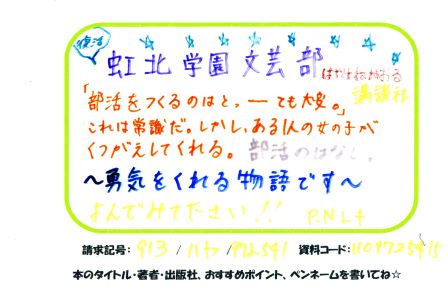 復活
虹北学園文芸部
はやみねかおる
講談社
「部活をつくるのはとっーても大変。」
これは常識だ。しかし、ある1人の女の子が
くつがえしてくれる。部活のはなし。
～勇気をくれる物語です～
よんでみて下さい!! P.N L4
請求記号: 913 / ハヤ / 912541 資料コード:
本のタイトル・著者・出版社、おすすめポイント、ペンネームを書いてね☆